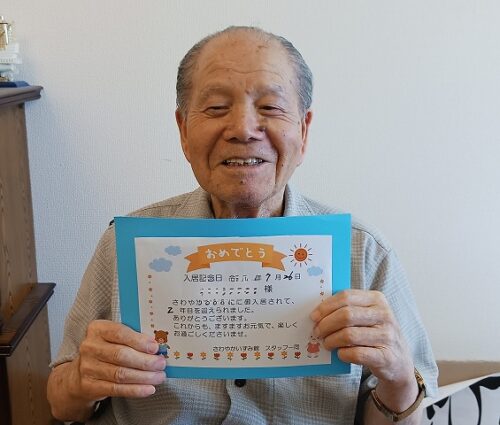 おめでとう
入居記念日 令和 元 年 9 月 26 日
様
さわやか に ご入居されて、
2 年目を迎えられました。
ありがとうございます。
これからも、ますますお元気で、楽しく
お過ごしくださいませ。
さわやかいずみ館 スタッフ一同